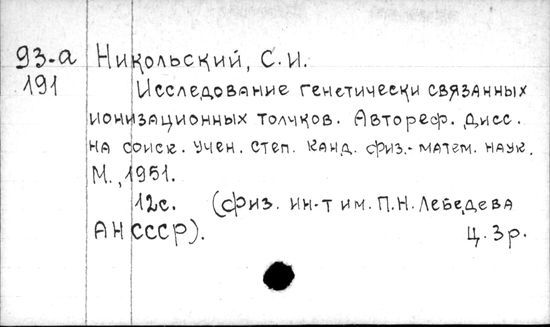 93-а Никольский, С.И.
191 Исследование генетически связанных
ионизационных толчков. Автореф. дисс.
на соиск. учен. степ. канд. физ.-матем. наук.
М., 1951.
12с. (Физ. ин-т им. П.Н.Лебедева
АН СССР). Ц. 3р.